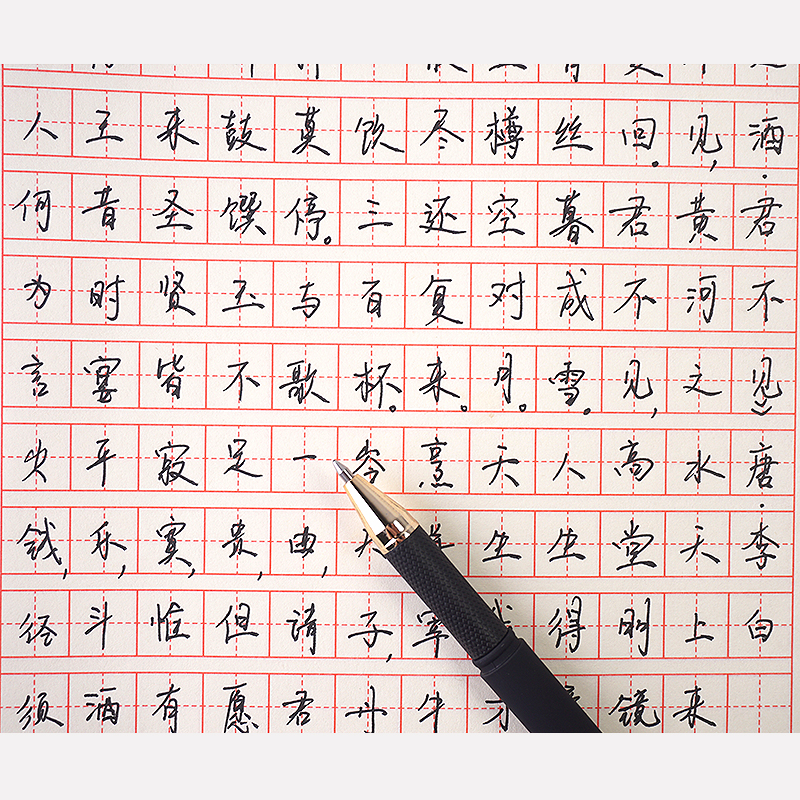 酒·君不见》唐·李白
见,黄河之水天上来
回。君不见,高堂明镜
丝暮成雪。人生得
樽空对月。天生我
尽还复来。烹羊宰牛
饮三百杯。岑夫子,丹
莫停。与歌一曲,请君
鼓馔玉不足贵,但愿
来圣贤皆寂寞,惟有
王昔时宴平乐,斗酒
人何为言少钱,径须